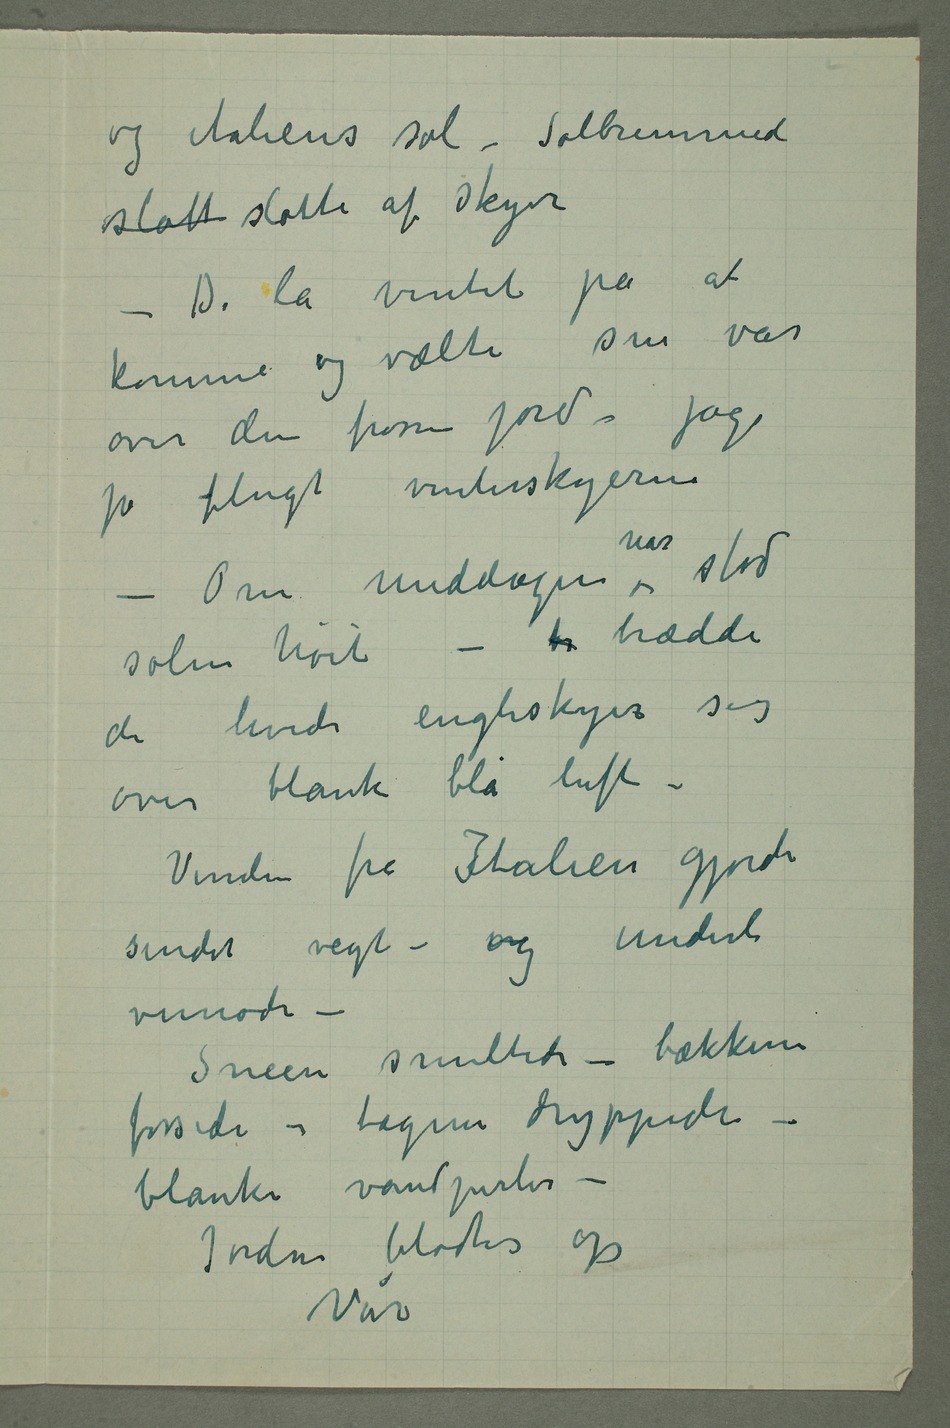 og italiens sol – Solbremmed
slott slotte af Skyer
– De la ventet på at
komme og vælte sin var
over den frosne jord – jage
på flugt vinterskyerne
– Om middagen når stod
solen höit – br brædde
de hvide engleskyer sig
over blank blå luft –
Vinden fra Italien gjorde
sindet vegt – og underli
vemodi –
Sneen smeltede – bækkene
fossede – tagene dryppede –
blanke vandperler –
Jorden blødtes op
Vår